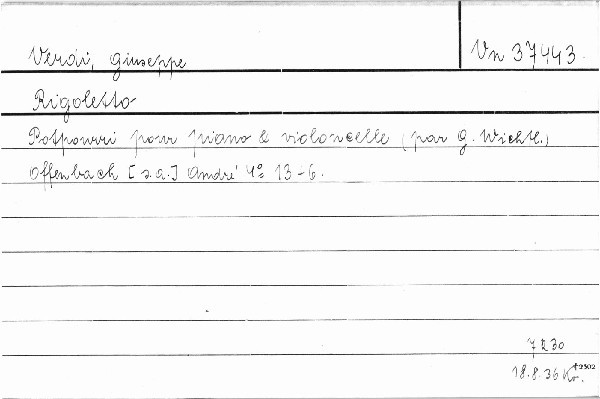 Verdi, Giuseppe
Vn 37443
Rigoletto
Potpourri pour piano & violoncelle (par G. Wichtl.)
Offenbach [s.a.] André 4° 13-6.
7230
18.8.36 Kr.